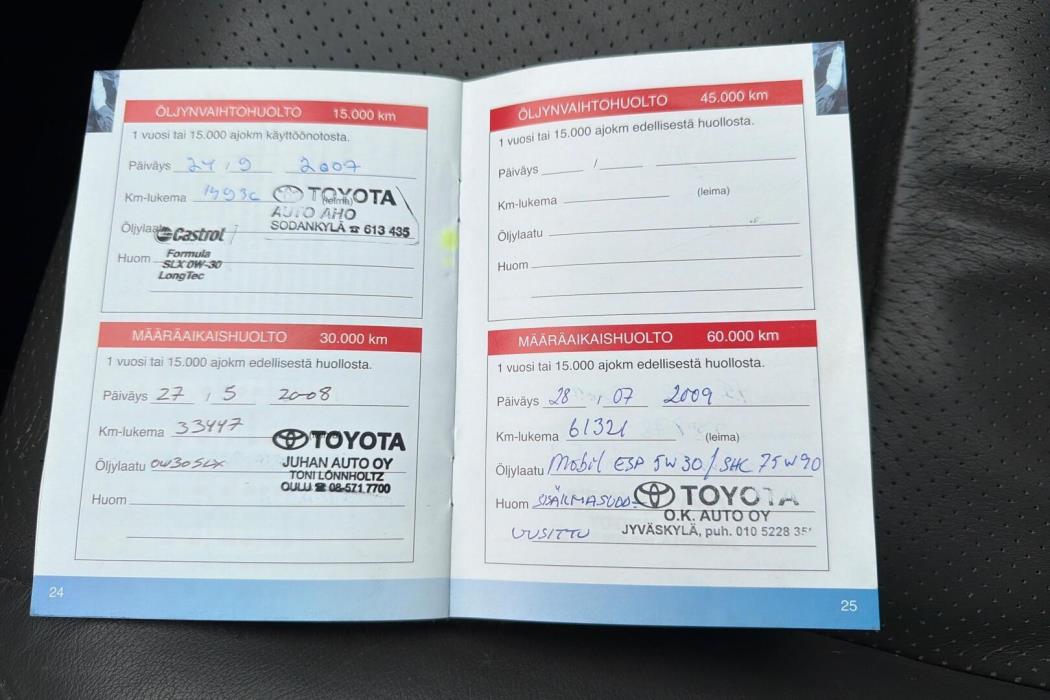 ÖLJYNVAIHTOHUOLTO 15.000 km
1 vuosi tai 15.000 ajokm käyttöönotosta.
Päiväys 24 / 9 2007
Km-lukema
TOYOTA
AUTO AHO
SODANKYLÄ ☎ 613 435
Öljylaatu
Castrol
Formula
SLX 0W-30
LongTec
Huom
MÄÄRÄAIKAISHUOLTO 30.000 km
1 vuosi tai 15.000 ajokm edellisestä huollosta.
Päiväys 27 / 5 2008
Km-lukema 33447
TOYOTA
JUHAN AUTO OY
TONI LÖNNHOLTZ
OULU ☎ 08-571 7700
Öljylaatu 0W30 SLX
Huom
24
ÖLJYNVAIHTOHUOLTO 45.000 km
1 vuosi tai 15.000 ajokm edellisestä huollosta.
Päiväys /
Km-lukema (leima)
Öljylaatu
Huom
MÄÄRÄAIKAISHUOLTO 60.000 km
1 vuosi tai 15.000 ajokm edellisestä huollosta.
Päiväys 28 / 07 2009
Km-lukema 61321 (leima)
Öljylaatu Mobil ESP 5W30 / SHC 75W90
Huom SISÄILMASUOD.
UUSITTU
TOYOTA
O.K. AUTO OY
JYVÄSKYLÄ, puh. 010 5228
25